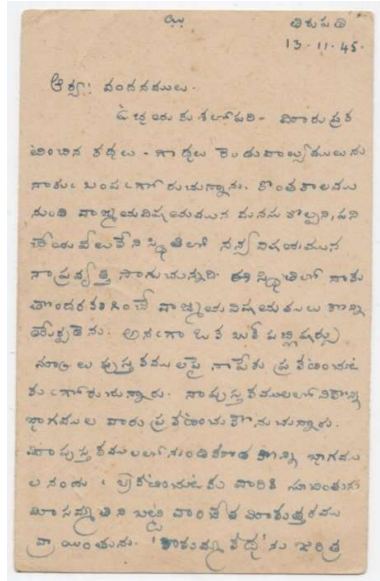 తిరుపతి
13-11-45.
ఆర్యా! వందనములు.
ఉభయకుశలోపరి - మీరు ప్రక
టించిన కథలు - గాథలు రెండు వాల్యుములును
నాకుఁ బంపఁగోరుచున్నాను. కొంతకాలము
నుండి వాఙ్మయవిషయమున మనసు కొల్పి, పని
చేయ వీలులేని స్థితిలో విషయమున
నా ప్రవృత్తి సాగుచున్నది. ఈ స్థితిలో నాకు
తొందర కలిగించే వాఙ్మయవిషయములు కొన్ని
యేర్పడెను. అనఁగా ఒక బుక్ పబ్లిషర్సు
నూఱు పుస్తకములపై నా పేరు ప్రకటించుట
కుఁ గోరుచున్నారు. నా పుస్తకములలోని కొన్ని
భాగముల వారు ప్రకటించుకొనుచున్నారు.
మీ పుస్తకములలోనుండి కూడ కొన్ని భాగము
లనందు ప్రకటించుటకు వారికి సూచింతును
మీ సమ్మతిని బట్టి వారిచేత మీకుత్తరము
వ్రాయింతును. కథను చరిత్ర